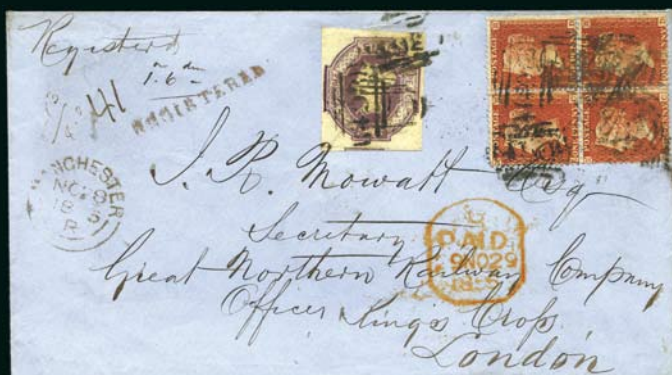 Registered
1. 6
41
REGISTERED
MANCHESTER
NO 28
18 51
R
J. R. Mowatt Esq
Secretary
Great Northern Railway Company
Offices Kings Cross
London
PAID
NO 29